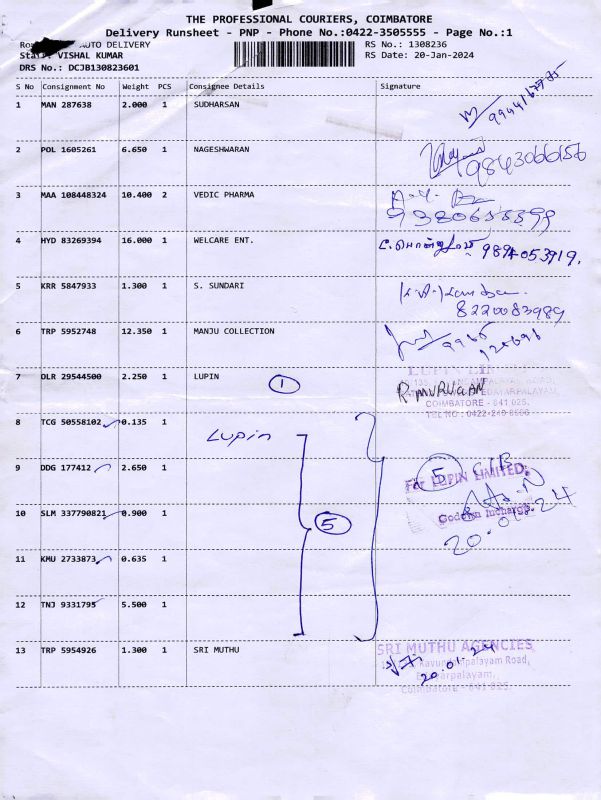 THE PROFESSIONAL COURIERS, COIMBATORE
Delivery Runsheet - PNP - Phone No.:0422-3505555 - Page No.:1
AUTO DELIVERY RS No.: 1308236
VISHAL KUMAR RS Date: 20-Jan-2024
DRS No.: DCJB130823601
S No Consignment No Weight PCS Consignee Details Signature
1 MAN 287638 2.000 1 SUDHARSAN
2 POL 1605261 6.650 1 NAGESHWARAN
3 MAA 108448324 10.400 2 VEDIC PHARMA
4 HYD 83269394 16.000 1 WELCARE ENT.
5 KRR 5847933 1.300 1 S. SUNDARI
8220083989
6 TRP 5952748 12.350 1 MANJU COLLECTION
7 DLR 29544500 2.250 1 LUPIN 1 R. MURUGAN
COIMBATORE - 641 025.
8 TCG 50558102 0.135 1
Lupin
9 DDG 177412 2.650 1
5
For LUPIN LIMITED,
10 SLM 337790821 0.900 1 5
Godown Incharge
20.01.24
11 KMU 2733873 0.635 1
12 TNJ 9331795 5.500 1
13 TRP 5954926 1.300 1 SRI MUTHU SRI MUTHU AGENCIES
20.01.24
Coimbatore - 641 025.